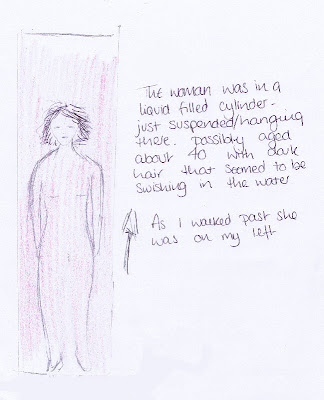 The woman was in a
liquid filled cylinder -
just suspended/hanging
there. possibly aged
about 40 with dark
hair that seemed to be
swishing in the water
As I walked past she
was on my left